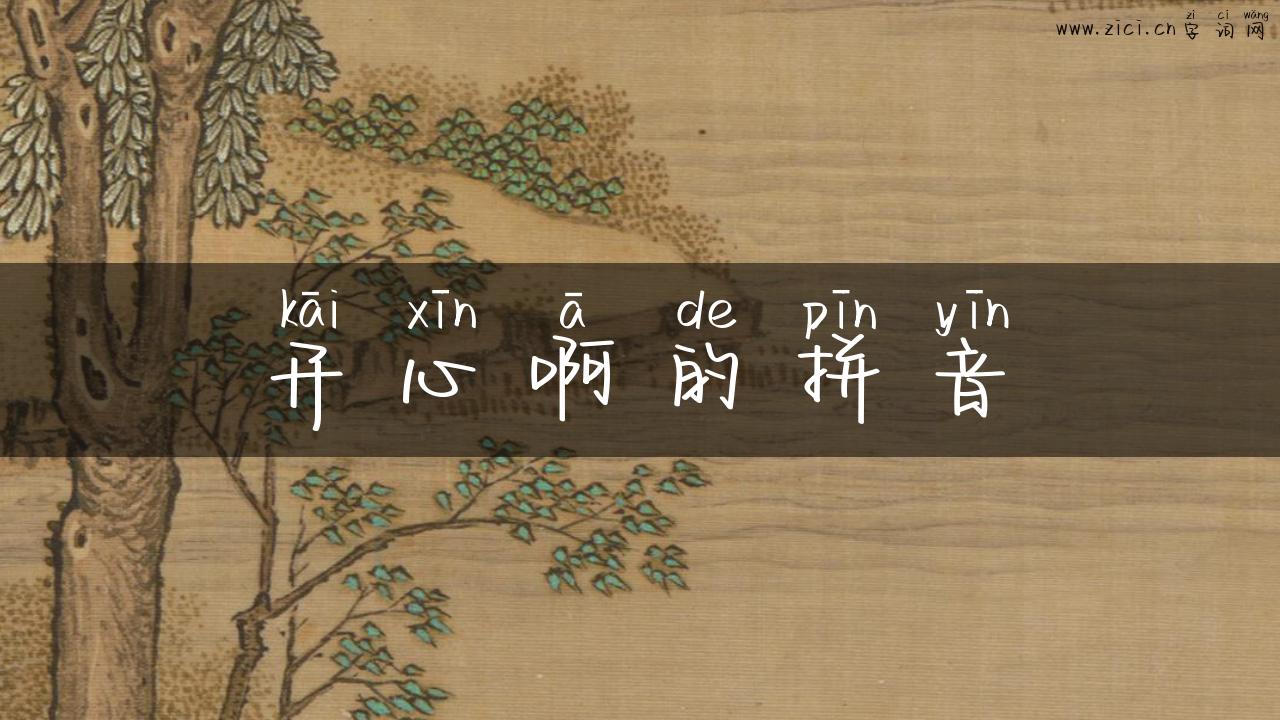 zì cí wǎng
www.zici.cn 字词网
kāi xīn ā de pīn yīn
开心啊的拼音